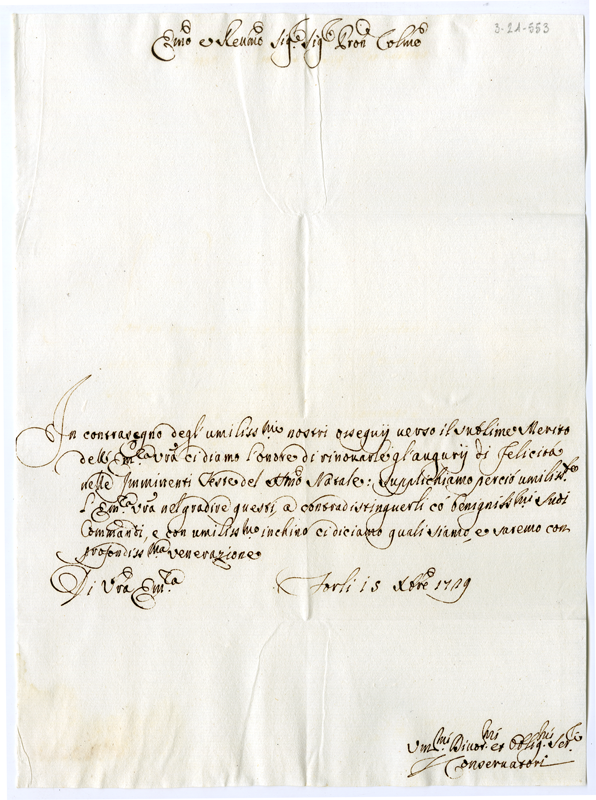 3-21-553
Emo e Revmo Sigre Sigre Pron Colmo
In contrasegno degl'umilissmi nostri ossequij verso il sublime Merito
della Emza Vra ci diamo l'onore di rinovarle gl'augurij di felicità
nelle Imminenti Feste del Smo Natale: supplichiamo perciò umilisste
l'Emza Vra nel gradire questi, a contradistinguerli co' benignissmi suoi
Commandi, e con umilissmo inchino ci diciamo quali siamo, e saremo con
profondissma venerazione
Di Vra Emza Forlì 15 Xbre 1729
Ummi Divotmi et Obligmi Serri
Conservatori